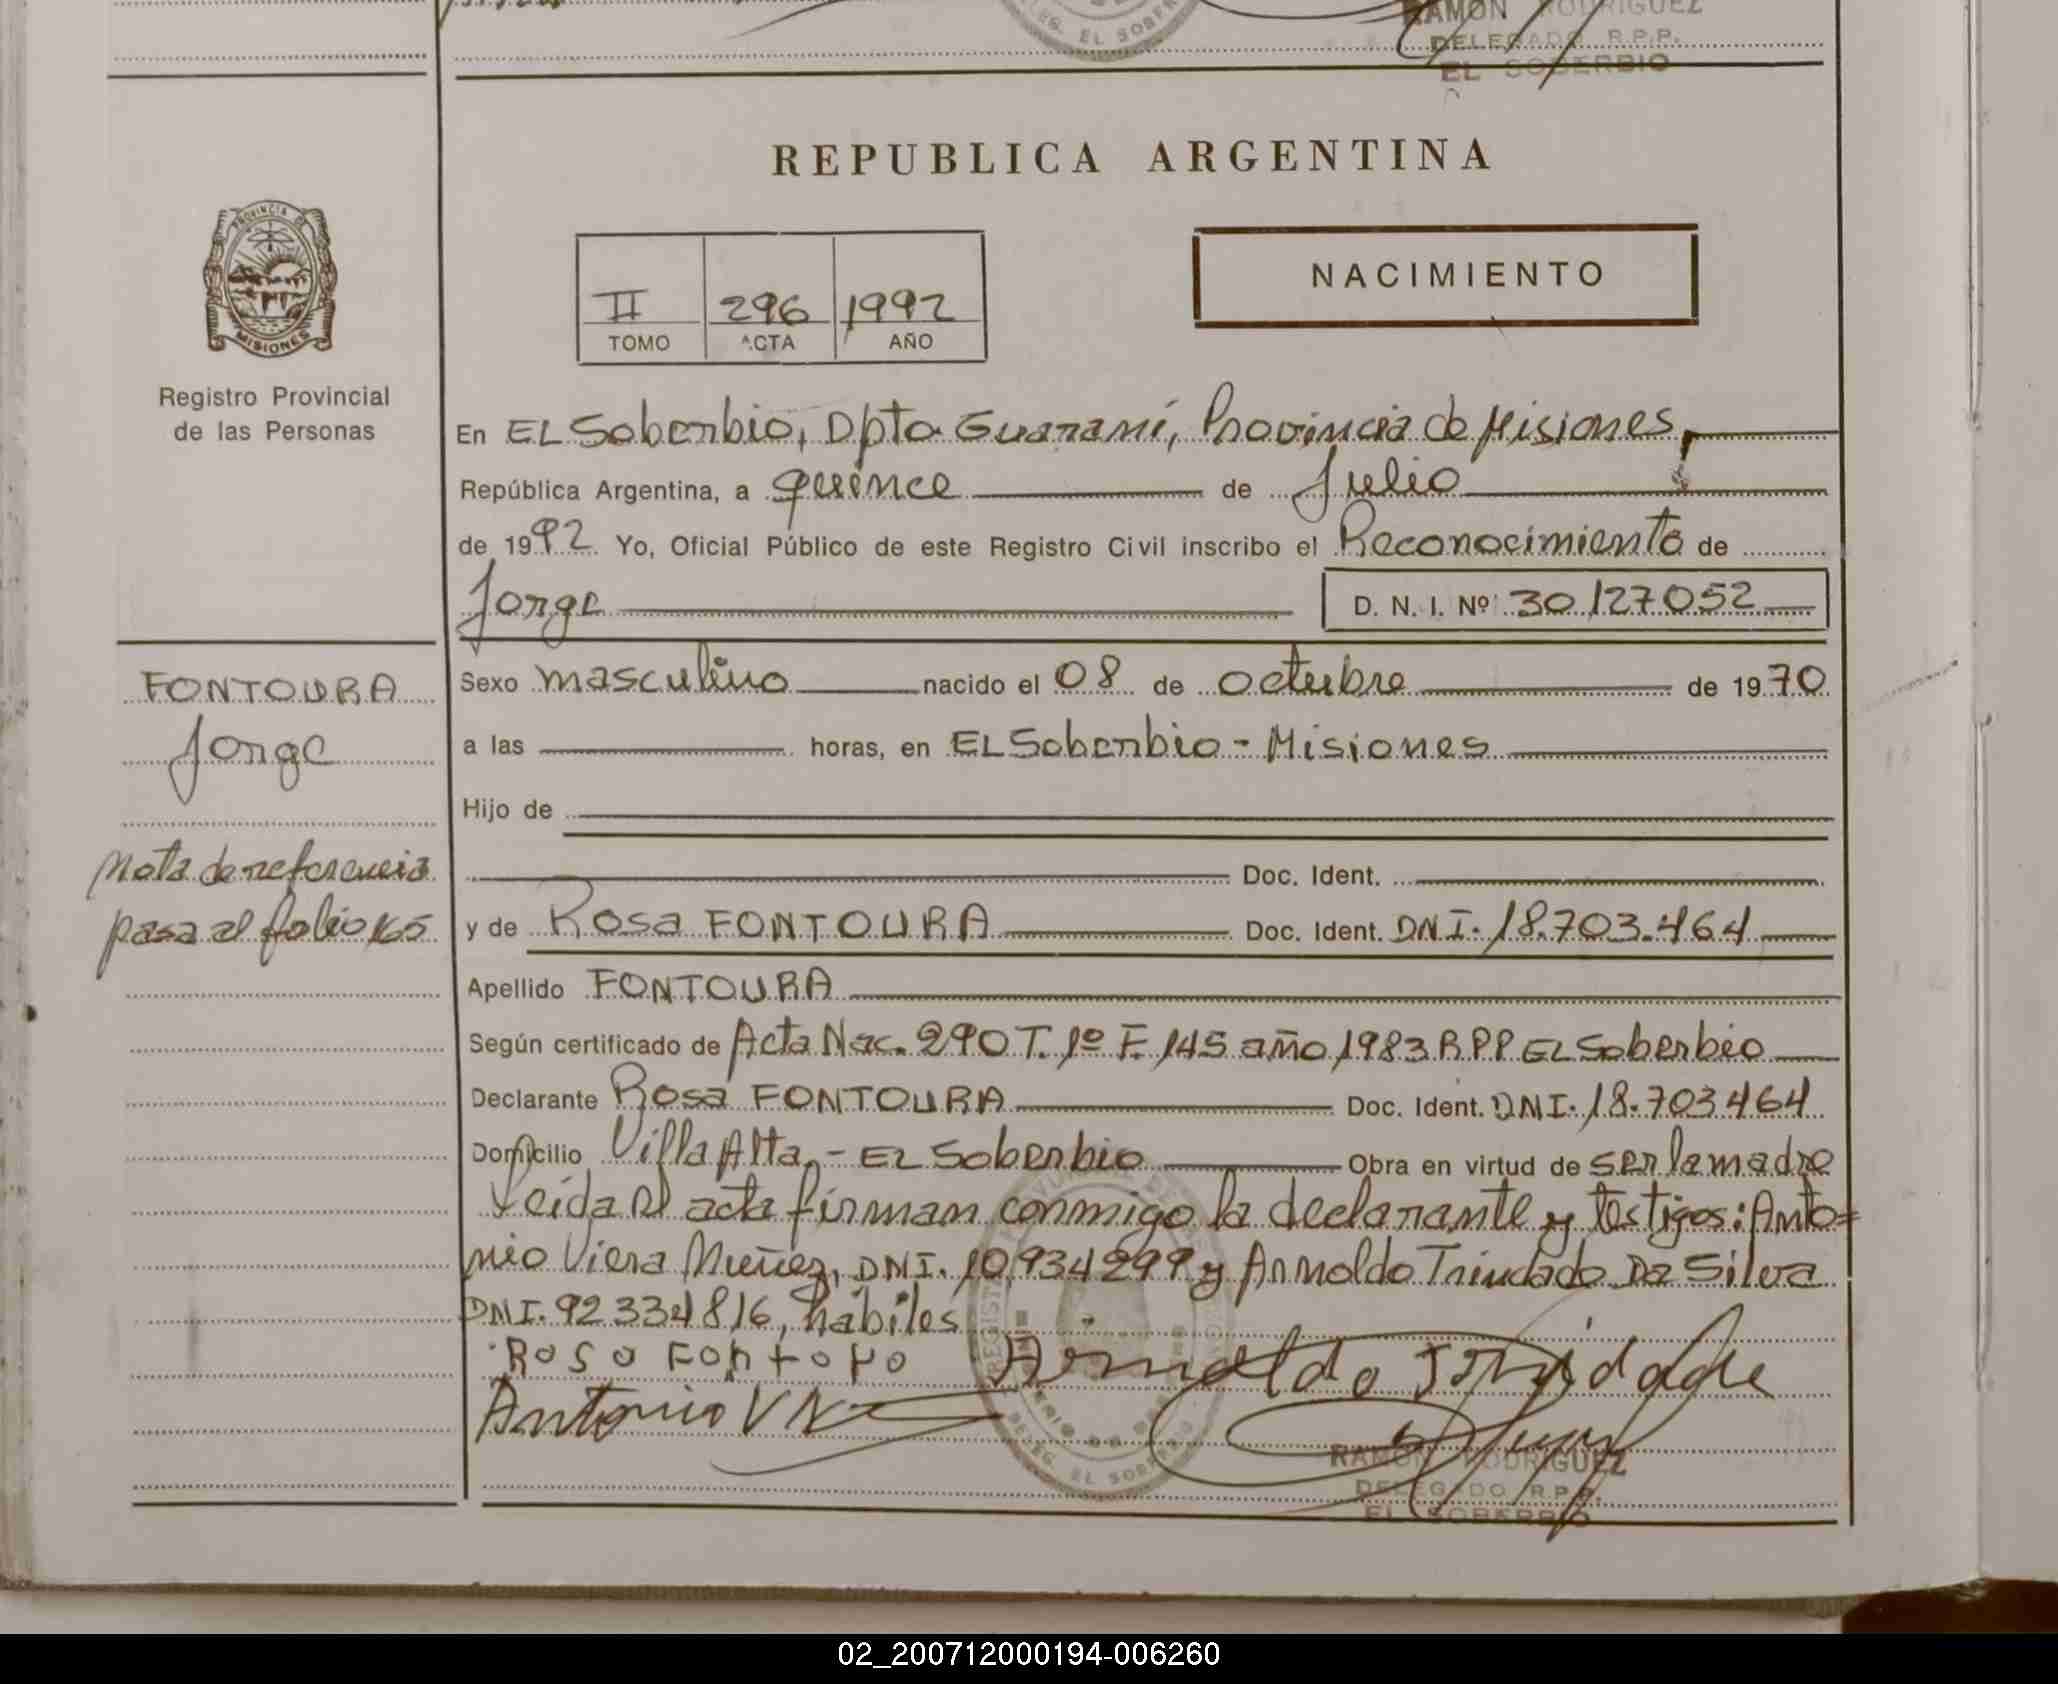 EL SOBERBIO
RAMON RODRIGUEZ
DELEGADO R.P.P.
EL SOBERBIO
REPUBLICA ARGENTINA
PROVINCIA DE
MISIONES
Registro Provincial
de las Personas
II 296 1992
TOMO ACTA AÑO
NACIMIENTO
En EL Soberbio, Dpto Guaraní, Provincia de Misiones
República Argentina, a quince de Julio
de 1992 Yo, Oficial Público de este Registro Civil inscribo el Reconocimiento de
Jorge D. N. I. Nº 30127052
FONTOURA
Jorge
Nota de referencia
pasa al folio 165
Sexo masculino nacido el 08 de octubre de 1970
a las horas, en EL Soberbio - Misiones
Hijo de
Doc. Ident.
y de Rosa FONTOURA Doc. Ident. DNI. 18.703.464
Apellido FONTOURA
Según certificado de Acta Nac. 290 T. 1º F. 145 año 1983 RPP EL Soberbio
Declarante Rosa FONTOURA Doc. Ident. DNI. 18.703464
Domicilio Villa Alta - EL Soberbio Obra en virtud de ser la madre
Leida el acta firman conmigo la declarante y testigos: Anto=
nio Viera Nuñez, DNI. 10.934299 y Arnoldo Trindade Da Silva
DNI. 92334816, hábiles
Roso Fontoro Arnaldo Trindade
Antonio V N
DELEG. EL SOBERBIO
RAMON RODRIGUEZ
DELEGADO R.P.P.
EL SOBERBIO
02_200712000194-006260